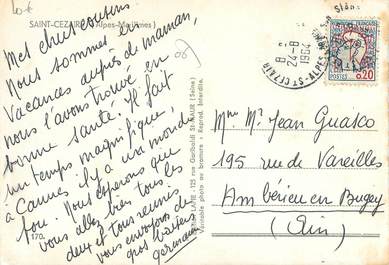 SAINT-CEZAIRE (Alpes-Maritimes)
Mes chers cousins
Nous sommes en
Vacances auprès de maman,
nous l'avons trouvée en
bonne santé. Il fait
un temps magnifique,
à Cannes il y a un monde
fou. Nous espérons que
vous allez bien tous les
deux et tous réunis
vous envoyons de
gros baisers
germaine
170.
LAPIE - 125 rue Garibaldi ST-MAUR (Seine)
Véritable photo au bromure - Reprod. Interdite.
ST CEZAIRE
ALPES
24-8
1964
0,20
Mme Mr Jean Guasco
195 rue de Vareilles
Ambérieu en Bugey
(Ain)